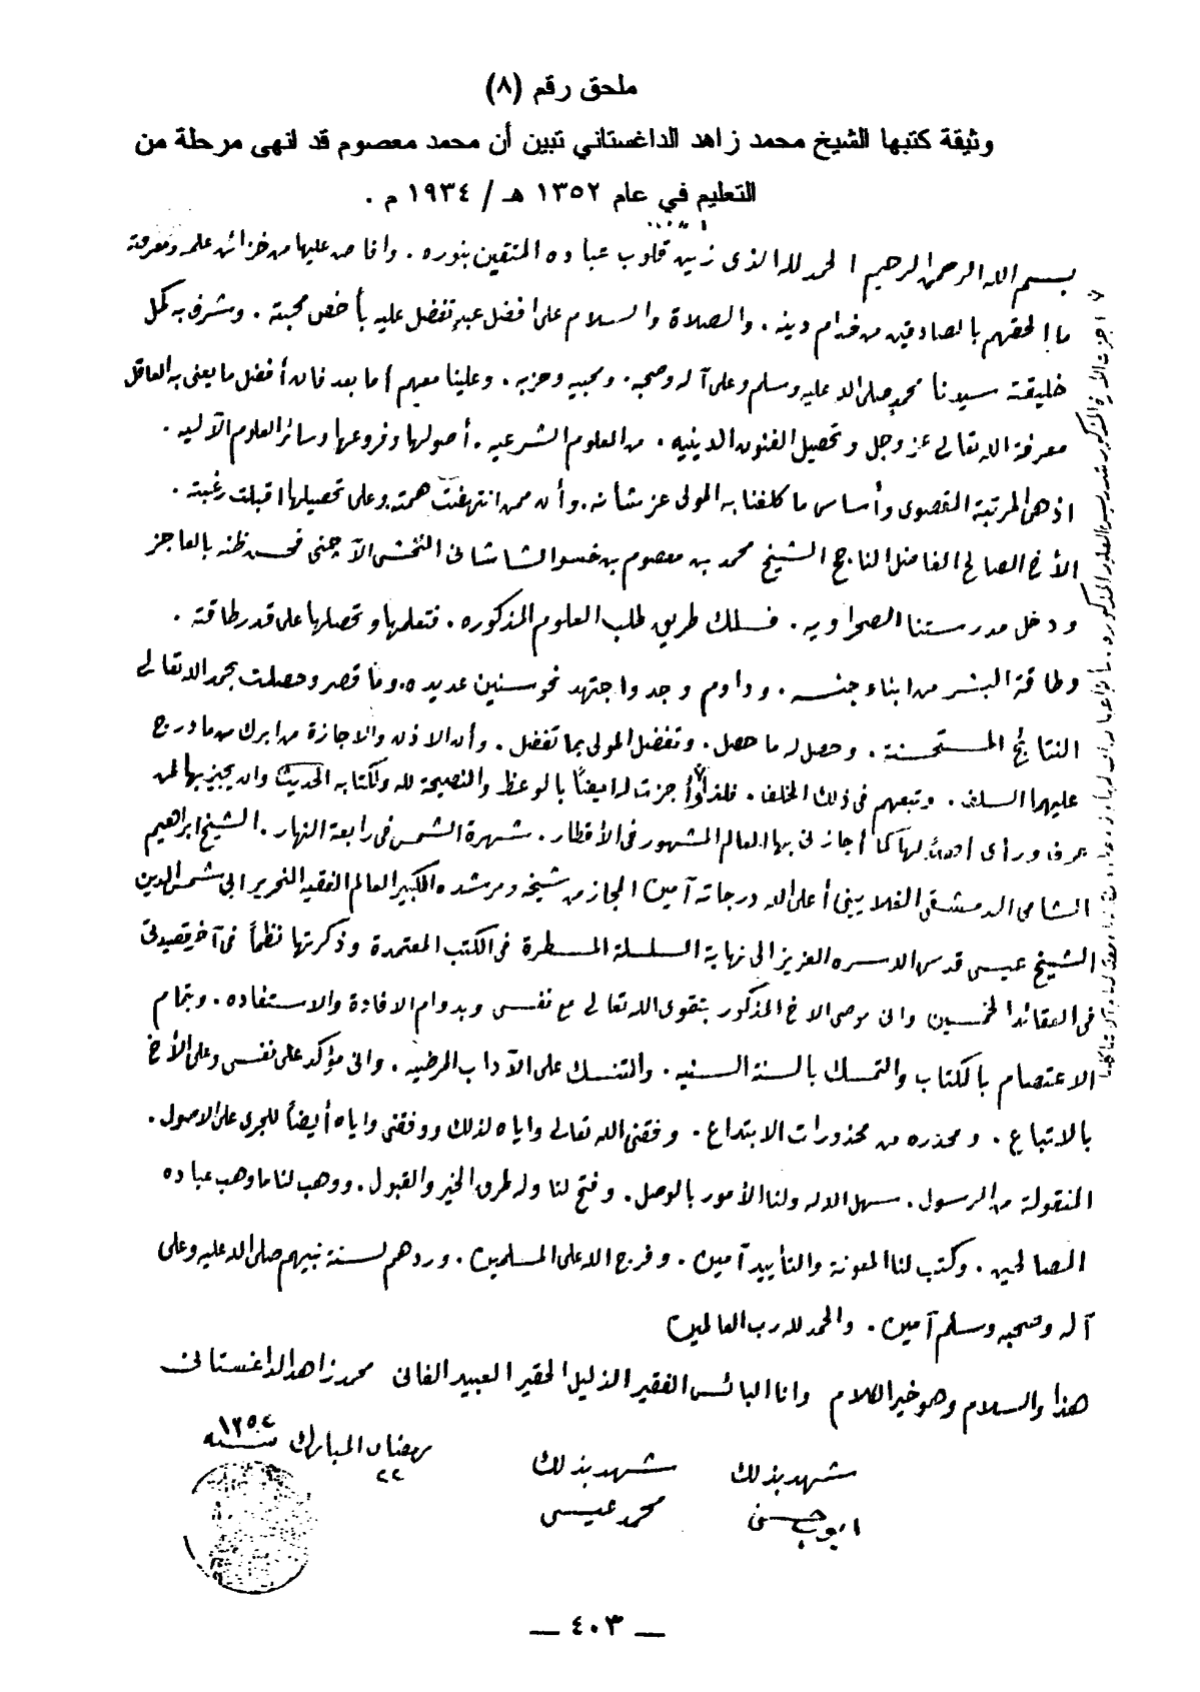 ملحق رقم (٨)
وثيقة كتبها الشيخ محمد زاهد الداغستاني تبين أن محمد معصوم قد انهى مرحلة من
التعليم في عام ١٣٥٢ هـ / ١٩٣٤ م .
بسم الله الرحمن الرحيم الحمد لله الذى زين قلوب عباده المتقين بنوره . وافاض عليها من خزائن علمه ومعرفته
ما الحقهم بالصادقين من خدام دينه . والصلاة والسلام على افضل عبد تفضل عليه بأخص محبته . وشرف به كمل
خليقته سيدنا محمد صلى الله عليه وسلم وعلى آله وصحبه . ومحبيه وحزبه . وعلينا معهم أما بعد فان أفضل ما يعنى به العاقل
معرفة الله تعالى عز وجل وتحصيل الفنون الدينيه . من العلوم الشرعيه . أصولها وفروعها وسائر العلوم الآليه .
اذ هى المرتبة القصوى وأساس ما كلفنا به المولى عز شأنه . وأن ممن انتهضت همته وعلى تحصيلها اقبلت رغبته .
الأخ الصالح الفاضل الناجح الشيخ محمد بن معصوم بن خسو الشاشانى الآچنى فحسن ظنه بالعاجز
ودخل مدرستنا الصحراويه . فسلك طريق طلب العلوم المذكوره . فتعلمها وتحصلها على قدر طاقته .
وطاقة البشر من ابناء جنسه . وداوم وجد واجتهد نحو سنين عديده . وما قصر وحصلت بحمد الله تعالى
النتائج المستحسنة . وحصل له ما حصل . وتفضل المولى بما تفضل . وأن الاذن والاجازة من ابرك ما درج
عليهما السلف . وتبعهم فى ذلك الخلفا . فلذا أجزت له ايضاً بالوعظ والنصيحة لله ولكتابه الحديث وان يجيز بها لمن
عرف ورأى لها كما أجازنى بها العالم المشهور فى الأقطار . شهرة الشمس فى رابعة النهار . الشيخ ابراهيم
الشامى الدمشقى الغلايينى أعلى الله درجاته آمين المجاز من شيخه ومرشده الكبير العالم الفقيه النحرير ابى شمس الدين
الشيخ عيسى قدس الله سره العزيز الى نهاية السلسلة المسطرة فى الكتب المعتمدة وذكرتها نظماً فى آخر قصيدتى
فى العقائد الخمسين وانى موصى الاخ المذكور بتقوى الله تعالى مع نفسى وبدوام الافادة والاستفاده . وبتمام
الاعتصام بالكتاب والتمسك بالسنة السنيه . والتنسك على الآداب المرضيه . وانى مؤكد على نفسى وعلى الأخ
بالاتباع . ومحذره من محذورات الابتداع . وفقنى الله تعالى واياه لذلك ووفقنى واياه أيضاً للجرى على الاصول .
المنقولة من الرسول . سهل الله له ولنا الأمور بالوصل . وفتح لنا وله طرق الخير والقبول . ووهب لنا ما وهب عباده
الصالحين . وكتب لنا المعونة والتأييد آمين . وفرج الله على المسلمين . وردهم لسنة نبيهم صلى الله عليه وعلى
آله وصحبه وسلم آمين . والحمد لله رب العالمين
هذا والسلام وهو خير الكلام وانا البائس الفقير الذليل الحقير العبيد الفانى محمد زاهد الداغستانى
رمضان المبارك سنه ١٣٥٤
٢٢
شهد بذلك شهد بذلك
ايوب حسنى محمد عيسى
— ٤٠٣ —